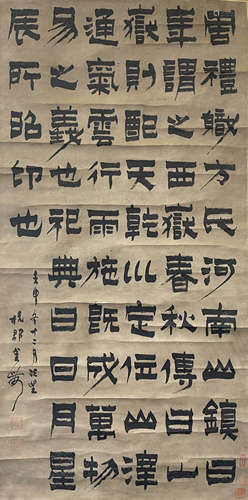 周禮職方氏河南山鎮曰
華謂之西嶽春秋傳曰山
嶽則配天乾川定位山澤
通氣雲行雨施既成萬物
易之義也祀典曰日月星
辰所昭印也
壬申年十二月
杭郡金農